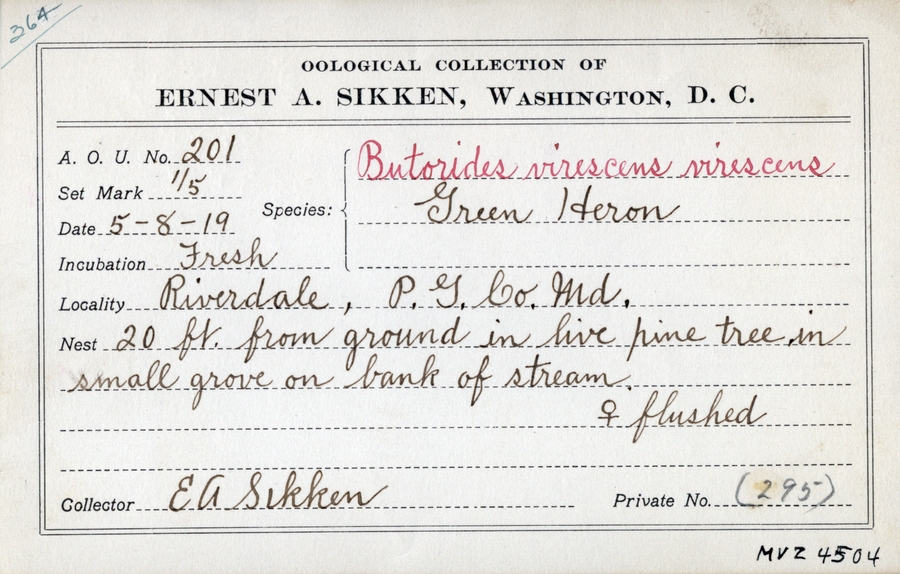 364
OOLOGICAL COLLECTION OF
ERNEST A. SIKKEN, WASHINGTON, D. C.
A. O. U. No. 201
Set Mark 1/5
Date 5-8-19
Incubation Fresh
Species: Butorides virescens virescens
Green Heron
Locality Riverdale, P. G. Co. Md.
Nest 20 ft. from ground in live pine tree, in
small grove on bank of stream.
♀ flushed
Collector E A Sikken
Private No. (295)
MVZ 4504